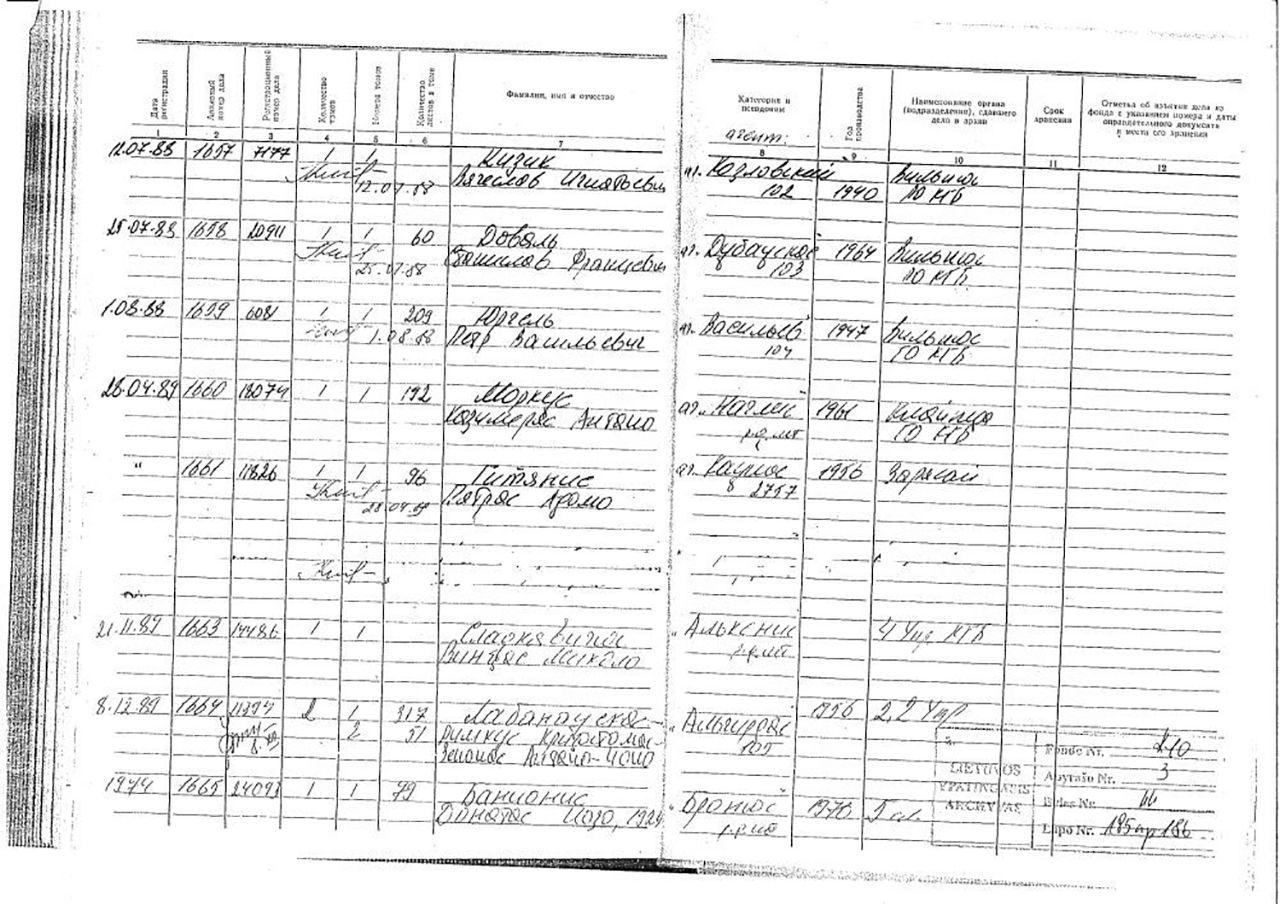 Дата регистрации
Архивный номер дела
Регистрационный номер дела
Количество томов
Номера томов
Количество листов в томе
Фамилия, имя и отчество
Категория и псевдоним
агент:
Год производства
Наименование органа (подразделения), сдавшего дело в архив
Срок хранения
Отметка об изъятии дела из фонда с указанием номера и даты оправдательного документа и места его хранения
1 2 3 4 5 6 7 8 9 10 11 12
12.07.88 1657 7177 1 1 Кизик аг. Козловский Вильнюс
12.07.88 Вячеслав Игнатьевич 102 1940 ГО КГБ
25.07.88 1658 20911 1 1 60 Доваль аг. Дубаускас 1964 Вильнюс
25.07.88 Станислав Францевич 103 ГО КГБ
1.08.88 1659 6081 1 1 209 Юргель аг. Васильев 1947 Вильнюс
1.08.88 Петр Васильевич 104 ГО КГБ
28.04.89 1660 18074 1 1 192 Моркус аг. 1961 Клайпеда
Казимерас Антано ГО КГБ
" 1661 11826 1 1 96 Гитянис аг. Каунас 1956 Зарасай
28.04.89 Пятрас Адомо 2757
21.11.89 1663 14486 1 1 " Альксник 4 Упр. КГБ
Винцас Микело
8.12.89 1664 2 1 317 Лабанаускас- " Альгирдас 1956 2,2 Упр
2 51 Римкус
Зенонас Антано-Чопо
LIETUVOS
YPATINGASIS
ARCHYVAS
Fondo Nr. K-10
Apyrašo Nr. 3
Bylos Nr. 66
Lapo Nr. 185 ap 186
1974 1665 24093 1 1 79 Банионис " Бронюс 1970
Донатас Юозо, 1924